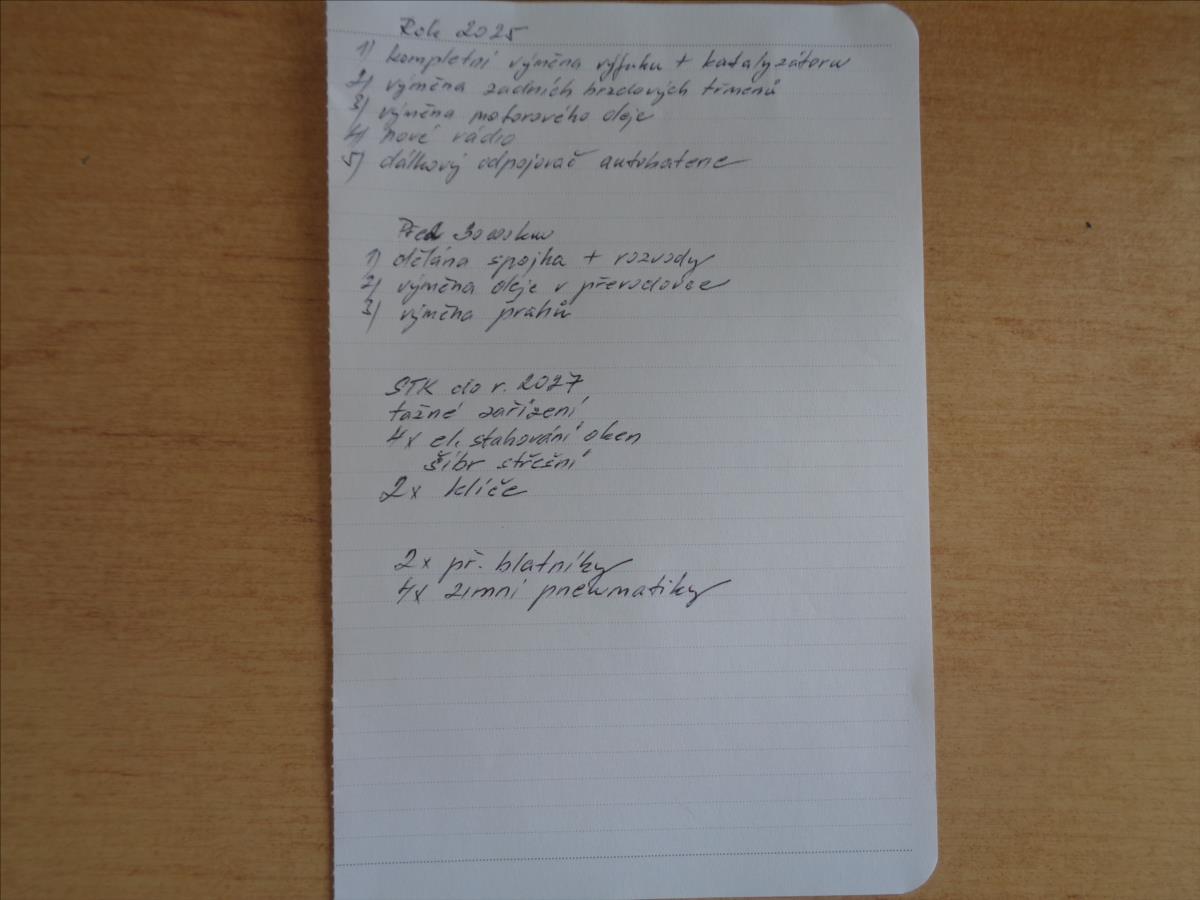 Rok 2025
1) kompletní výměna výfuku + katalyzátoru
2) výměna zadních brzdových třmenů
3) výměna motorového oleje
4) nové rádio
5) dálkový odpojovač autobaterie
Před 30000km
1) dělána spojka + rozvody
2) výměna oleje v převodovce
3) výměna prahů
STK do r. 2027
tažné zařízení
4x el. stahování oken
šíbr střešní
2x klíče
2x př. blatníky
4x zimní pneumatiky